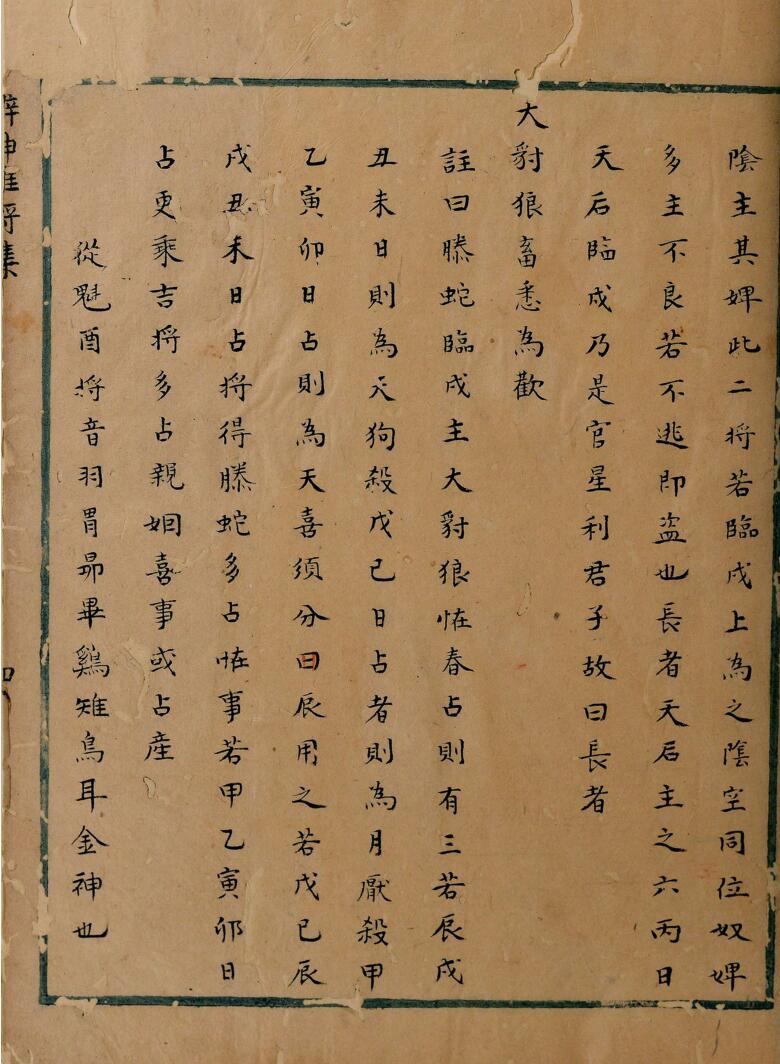 陰主其婢此二将若臨戌上為之陰空同位奴婢
多主不良若不逃即盗也長者天后主之六丙日
天后臨戌乃是官星利君子故曰長者
大豺狼畜悉為歡
註曰螣蛇臨戌主大豺狼恠春占則有三若辰戌
丑未日則為天狗殺戊己日占者則為月厭殺甲
乙寅卯日占則為天喜須分曰辰用之若戊己辰
戌丑未日占将得螣蛇多占恠事若甲乙寅卯日
占更乘吉将多占親姻喜事或占産
從魁酉将音羽胃昴畢鷄雉鳥耳金神也
神
集